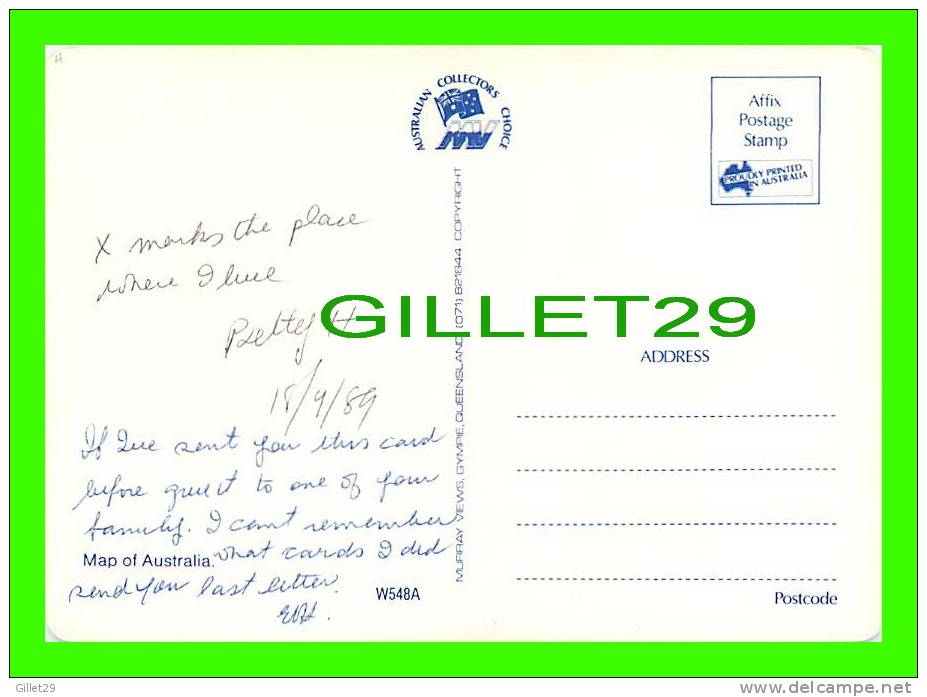 AUSTRALIAN COLLECTORS CHOICE
MV
Affix
Postage
Stamp
PROUDLY PRINTED
IN AUSTRALIA
X marks the place
where I live
Betty H
18/9/89
If I've sent you this card
before give it to one of your
family. I cant remember
what cards I did
send you last letter.
Map of Australia.
W548A
MURRAY VIEWS, GYMPIE, QUEENSLAND (071) 821844 COPYRIGHT
GILLET29
ADDRESS
Postcode
Gillet29
www.delcampe.net